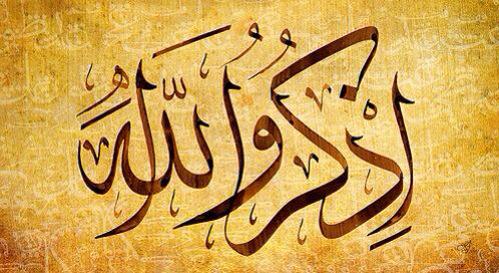 إذكُرُو اللّهَ